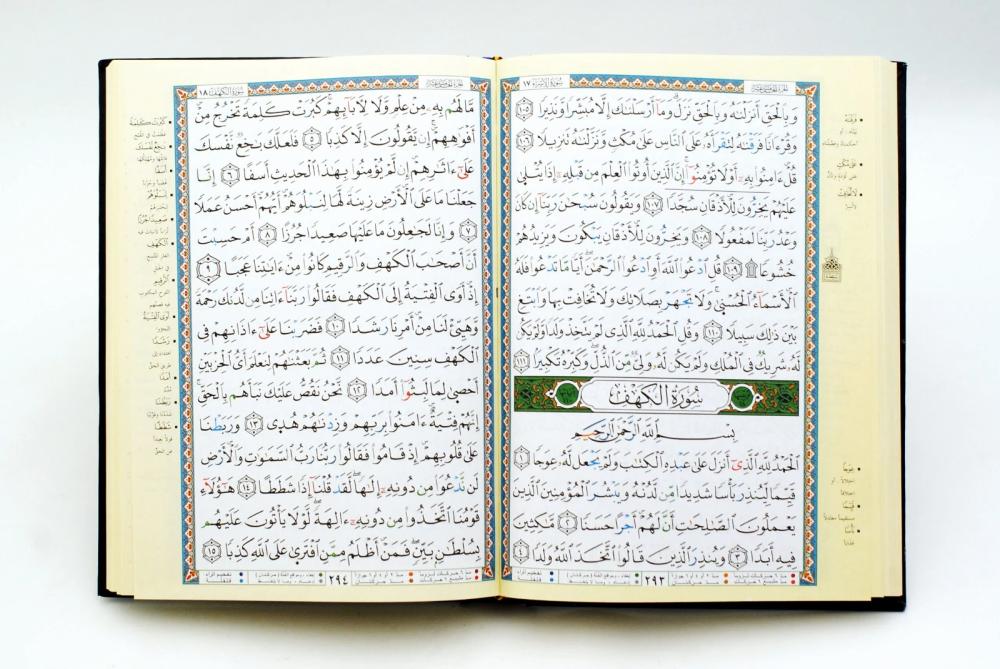 سُورَةُ الإِسْرَاءِ ١٧
وَبِالْحَقِّ أَنزَلْنَاهُ وَبِالْحَقِّ نَزَلَ وَمَا أَرْسَلْنَاكَ إِلَّا مُبَشِّرًا وَنَذِيرًا ١٠٥
وَقُرْآنًا فَرَقْنَاهُ لِتَقْرَأَهُ عَلَى النَّاسِ عَلَى مُكْثٍ وَنَزَّلْنَاهُ تَنزِيلًا ١٠٦
قُلْ ءَامِنُوا بِهِ أَوْ لَا تُؤْمِنُوا إِنَّ الَّذِينَ أُوتُوا الْعِلْمَ مِن قَبْلِهِ إِذَا يُتْلَى
عَلَيْهِمْ يَخِرُّونَ لِلْأَذْقَانِ سُجَّدًا ١٠٧ وَيَقُولُونَ سُبْحَانَ رَبِّنَا إِن كَانَ
وَعْدُ رَبِّنَا لَمَفْعُولًا ١٠٨ وَيَخِرُّونَ لِلْأَذْقَانِ يَبْكُونَ وَيَزِيدُهُمْ
خُشُوعًا ۩ ١٠٩ قُلِ ادْعُوا اللَّهَ أَوِ ادْعُوا الرَّحْمَٰنَ أَيًّا مَّا تَدْعُوا فَلَهُ
الْأَسْمَاءُ الْحُسْنَى وَلَا تَجْهَرْ بِصَلَاتِكَ وَلَا تُخَافِتْ بِهَا وَابْتَغِ
بَيْنَ ذَٰلِكَ سَبِيلًا ١١٠ وَقُلِ الْحَمْدُ لِلَّهِ الَّذِي لَمْ يَتَّخِذْ وَلَدًا وَلَمْ يَكُن
لَّهُ شَرِيكٌ فِي الْمُلْكِ وَلَمْ يَكُن لَّهُ وَلِيٌّ مِّنَ الذُّلِّ وَكَبِّرْهُ تَكْبِيرًا ١١١
سُورَةُ الْكَهْفِ
بِسْمِ اللَّهِ الرَّحْمَٰنِ الرَّحِيمِ
الْحَمْدُ لِلَّهِ الَّذِي أَنزَلَ عَلَى عَبْدِهِ الْكِتَابَ وَلَمْ يَجْعَل لَّهُ عِوَجًا ١
قَيِّمًا لِّيُنذِرَ بَأْسًا شَدِيدًا مِّن لَّدُنْهُ وَيُبَشِّرَ الْمُؤْمِنِينَ الَّذِينَ
يَعْمَلُونَ الصَّالِحَاتِ أَنَّ لَهُمْ أَجْرًا حَسَنًا ٢ مَّاكِثِينَ
فِيهِ أَبَدًا ٣ وَيُنذِرَ الَّذِينَ قَالُوا اتَّخَذَ اللَّهُ وَلَدًا ٤
٢٩٣
سُورَةُ الْكَهْفِ ١٨
مَّا لَهُم بِهِ مِنْ عِلْمٍ وَلَا لِآبَائِهِمْ كَبُرَتْ كَلِمَةً تَخْرُجُ مِنْ
أَفْوَاهِهِمْ إِن يَقُولُونَ إِلَّا كَذِبًا ٥ فَلَعَلَّكَ بَاخِعٌ نَّفْسَكَ
عَلَى ءَاثَارِهِمْ إِن لَّمْ يُؤْمِنُوا بِهَٰذَا الْحَدِيثِ أَسَفًا ٦ إِنَّا
جَعَلْنَا مَا عَلَى الْأَرْضِ زِينَةً لَّهَا لِنَبْلُوَهُمْ أَيُّهُمْ أَحْسَنُ عَمَلًا
٧ وَإِنَّا لَجَاعِلُونَ مَا عَلَيْهَا صَعِيدًا جُرُزًا ٨ أَمْ حَسِبْتَ
أَنَّ أَصْحَابَ الْكَهْفِ وَالرَّقِيمِ كَانُوا مِنْ ءَايَاتِنَا عَجَبًا ٩
إِذْ أَوَى الْفِتْيَةُ إِلَى الْكَهْفِ فَقَالُوا رَبَّنَا ءَاتِنَا مِن لَّدُنكَ رَحْمَةً
وَهَيِّئْ لَنَا مِنْ أَمْرِنَا رَشَدًا ١٠ فَضَرَبْنَا عَلَى ءَاذَانِهِمْ فِي
الْكَهْفِ سِنِينَ عَدَدًا ١١ ثُمَّ بَعَثْنَاهُمْ لِنَعْلَمَ أَيُّ الْحِزْبَيْنِ
أَحْصَى لِمَا لَبِثُوا أَمَدًا ١٢ نَّحْنُ نَقُصُّ عَلَيْكَ نَبَأَهُم بِالْحَقِّ
إِنَّهُمْ فِتْيَةٌ ءَامَنُوا بِرَبِّهِمْ وَزِدْنَاهُمْ هُدًى ١٣ وَرَبَطْنَا
عَلَى قُلُوبِهِمْ إِذْ قَامُوا فَقَالُوا رَبُّنَا رَبُّ السَّمَاوَاتِ وَالْأَرْضِ
لَن نَّدْعُوَا مِن دُونِهِ إِلَٰهًا لَّقَدْ قُلْنَا إِذًا شَطَطًا ١٤ هَٰؤُلَاءِ
قَوْمُنَا اتَّخَذُوا مِن دُونِهِ ءَالِهَةً لَّوْلَا يَأْتُونَ عَلَيْهِم
بِسُلْطَانٍ بَيِّنٍ فَمَنْ أَظْلَمُ مِمَّنِ افْتَرَى عَلَى اللَّهِ كَذِبًا ١٥
٢٩٤